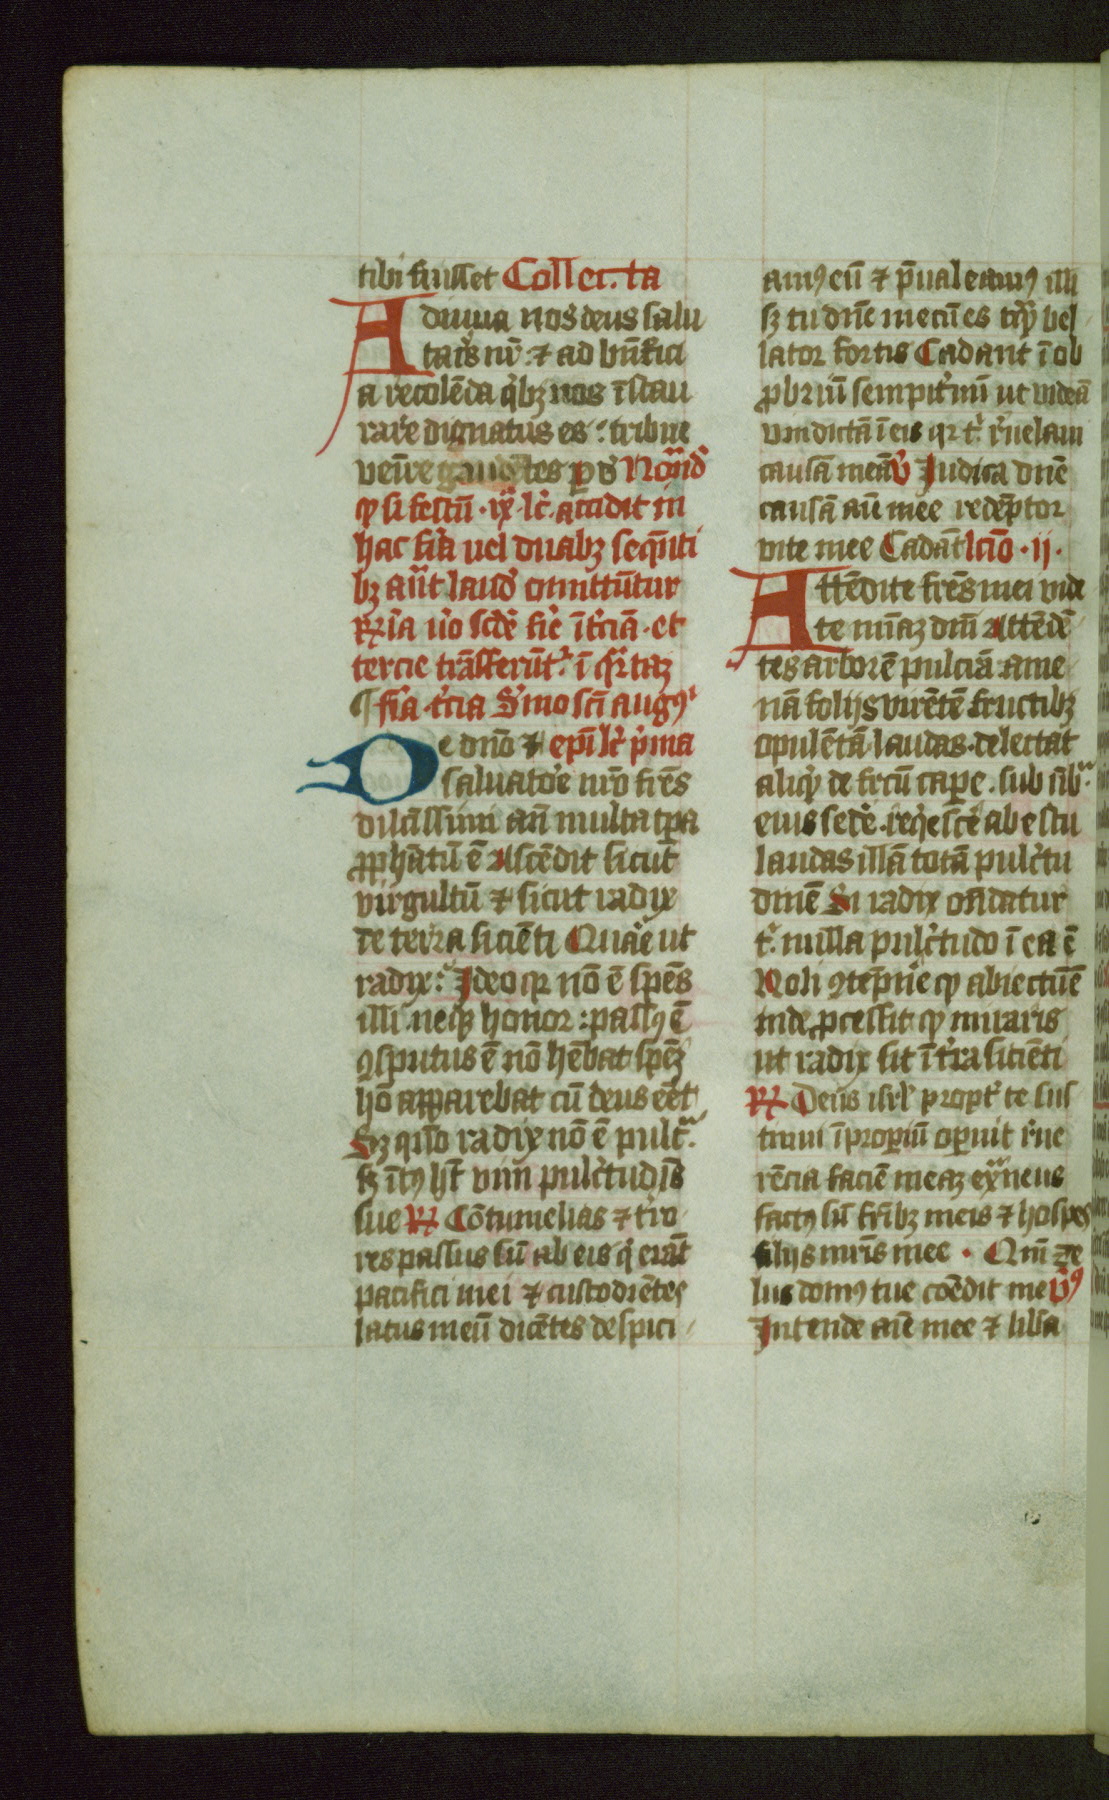 tibi fuisset Collecta
Adiuua nos deus salu
taris nr̄ : ⁊ ad bn̄fici
a recolēda qͥbꝫ nos īstau
rare dignatus es : tribue
venire gaudētes ꝑ Notand
ꝙ si festū ·ix· lc̄ accidit in
hac fīa uel duabꝫ seqn̄ti
bꝫ an̄t laud̾ omittūtur
R̸ia ūo scd̾e fie īt̾ciā · et
tercie trāsferūt̾ ī q̄rtaꝫ
¶ fīa t̾cia S̾mo sci augꝰ
De dn̄o ⁊ ep̄i lc̄ p̾ma
saluatōe nr̄o fr̄es
dilcissimi an̄ multa tꝑa
ꝓphātū ē Ascēdit sicut
virgultū ⁊ sicut radix
de terra sicienti Quare ut
radix : Ideoqꝫ nō ē spēs
illi neqꝫ honor : passꝰ ē
ꝯsputus ē nō hēbat spēꝫ
hō apparebat cū deus eēt
Sꝫ quō radix nō ē pulc̾ᵃ
sꝫ ītꝰ hꝫ vim pulc̾tudīs
sue R̸ Cōtumelias ⁊ t̾ro
res passus sū ab eis qͥ erāt
pacifici mei ⁊ custodiētes
latus meū dicētes decipi
amꝰ eū ⁊ p̄ualeamꝰ illi
sꝫ tu dn̄e mecū es tāqͣ bel
lator fortis Cadant ī ob
ꝓbriū sempit̾nū ut videā
vindictā ī eis qꝛ t̾ r̾uelaui
causā meā v̾ Iudica dn̄e
causā aīe mee redēptor
vite mee Cadāt lcīo · ij ·
Attēdite fr̄es mei vide
te mīaꝫ dn̄i Attēdē
tes arborē pulcrā · ame
nā folijs virētē fructibꝫ
opulētā laudas · delectat
aliqͥd de frcū caꝑe . sub ūbᵃ
eius sed̾e . reqͥescē ab estu
laudas illā totā pulc̾tu
dinē Si radix on̄datur
t̾ nulla pulc̾tudo ī ea ē
Noli ꝯtēpn̄e ꝙ abiectū ē
inde ꝓcessit ꝙ miraris
ut radix sit ī t̾ra sicienti
R̸ Deus isrl̾ propt̾ te sus
tinui īproꝑiū oꝑuit r̾ue
rēcia faciē meaꝫ extͣneus
factꝰ sū frībꝫ meis ⁊ hospes
filijs mr̄is mee · Qm̄ ze
lus domꝰ tue comēdit me v̾ꝰ
Intende aīe mee ⁊ lib̾a